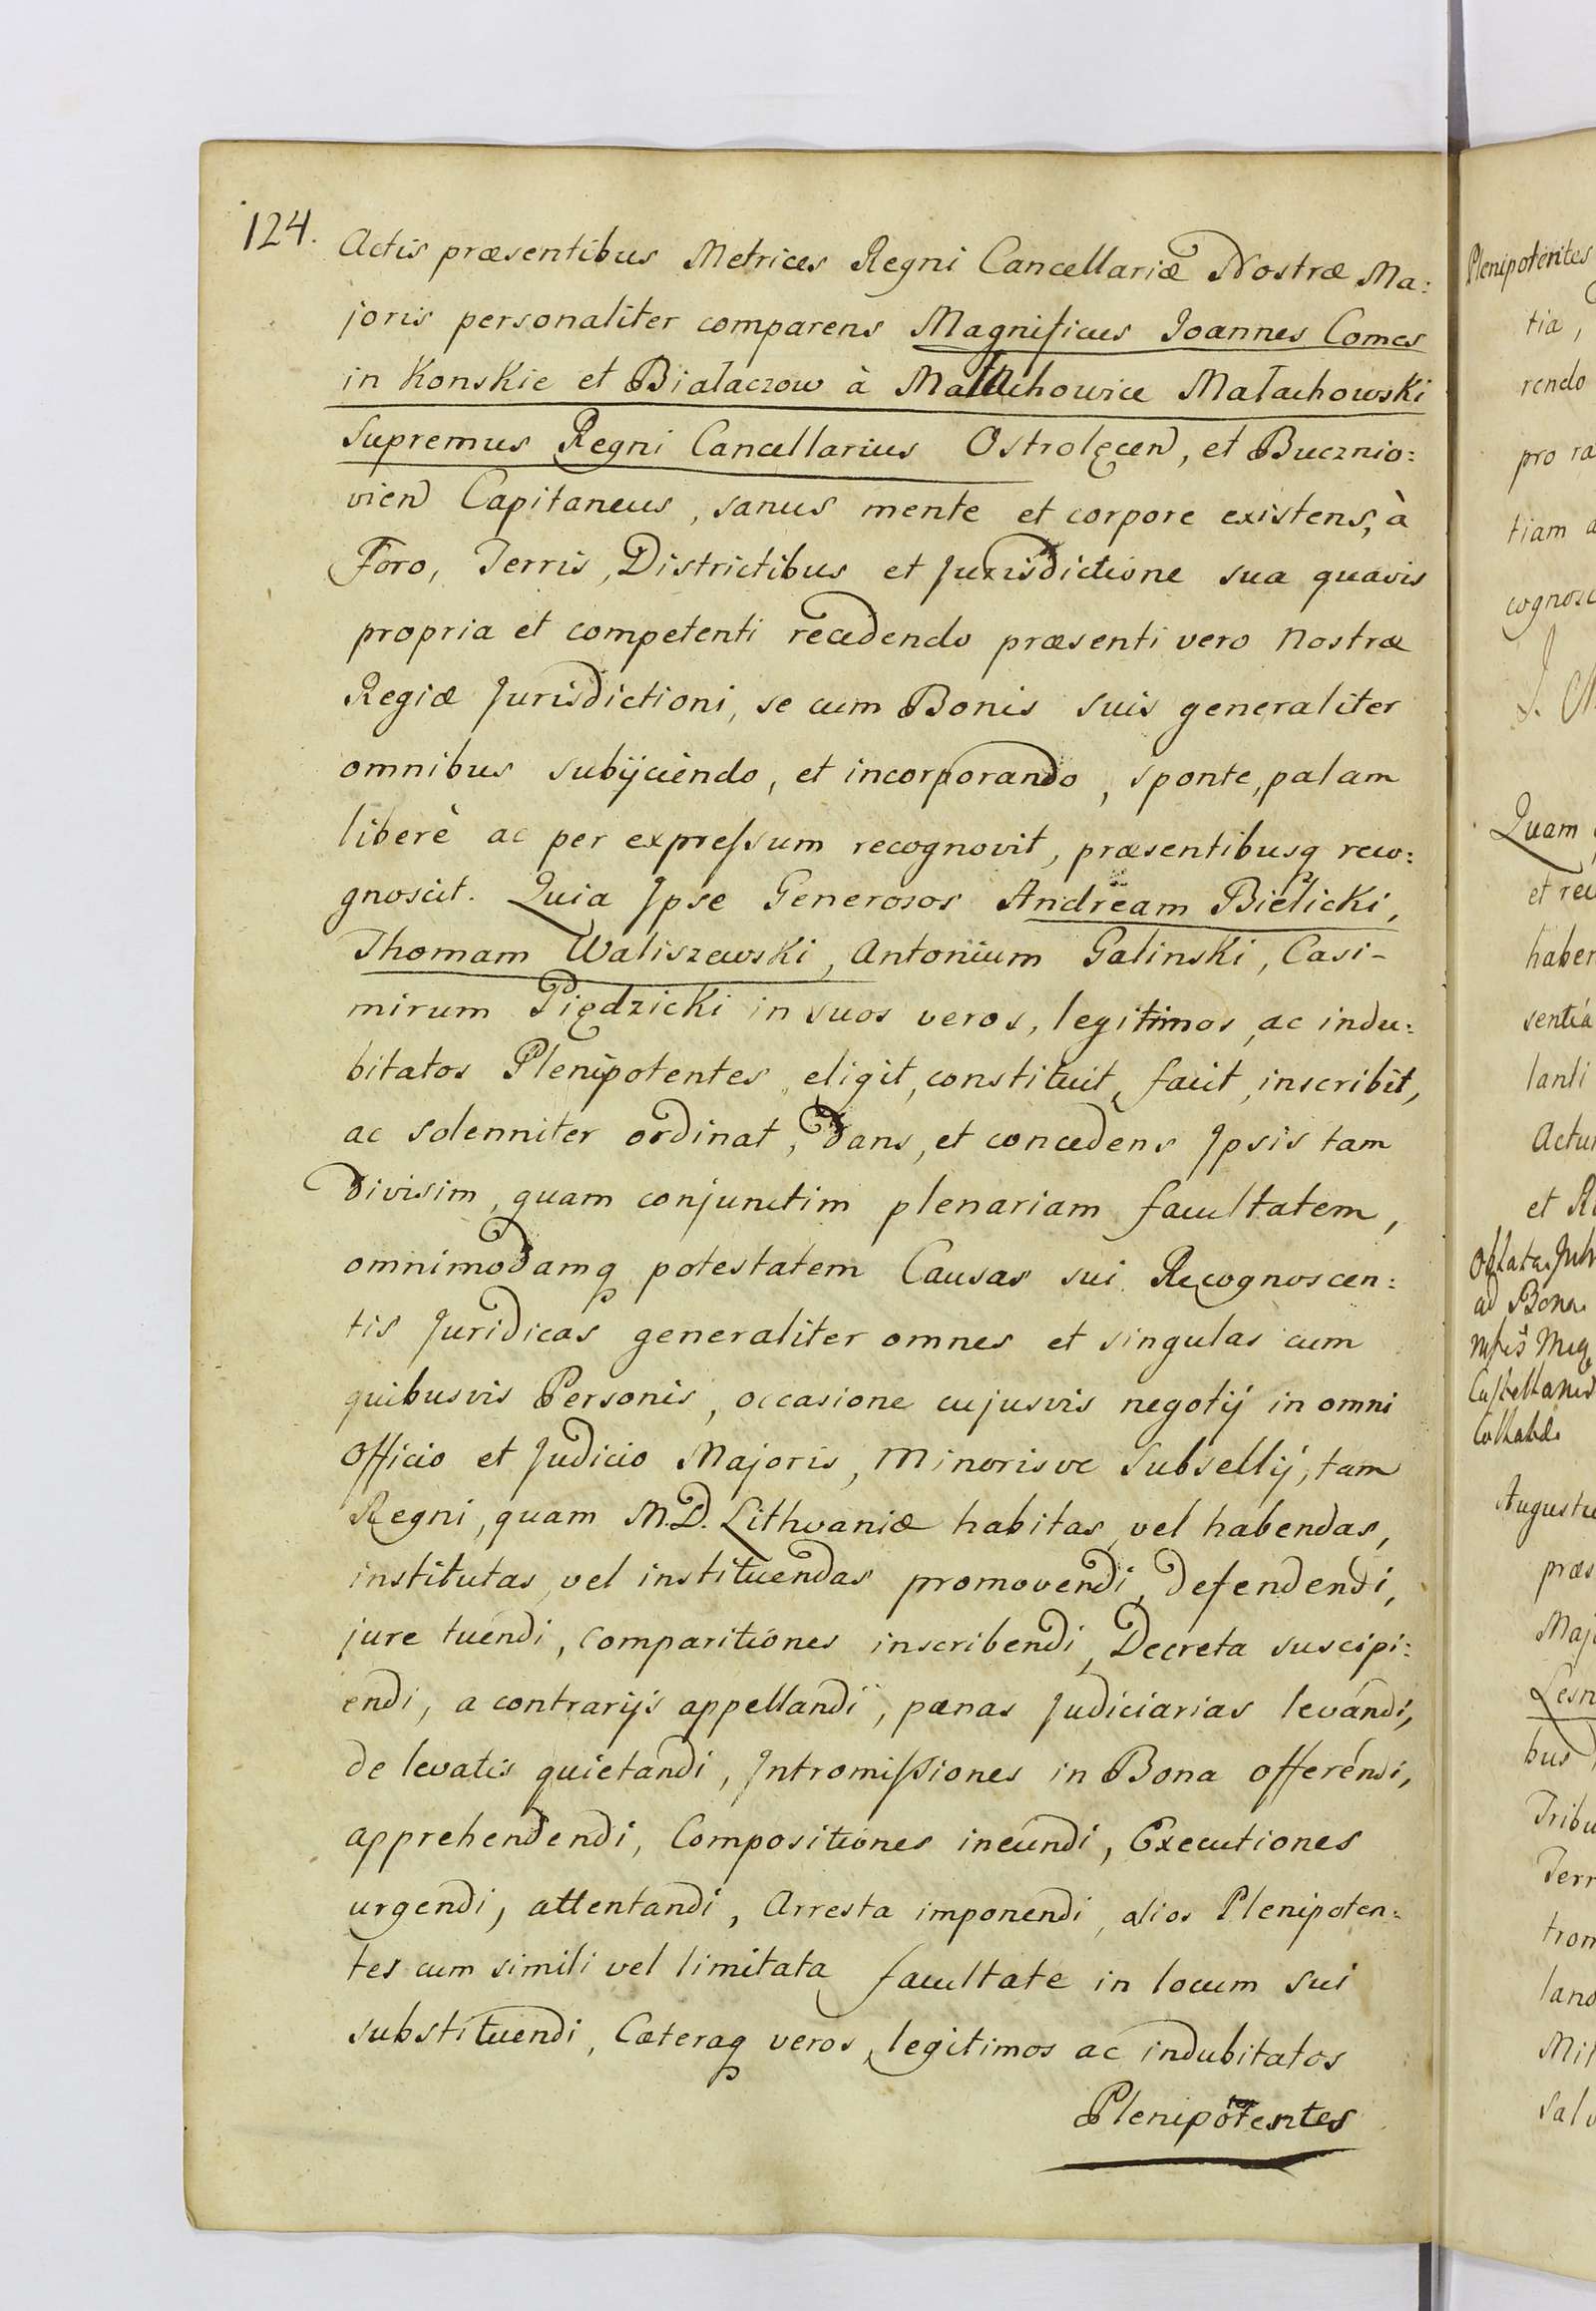 124.
Actis præsentibus Metrices Regni Cancellariæ Nostræ Ma:
joris personaliter comparens Magnificus Joannes Comes
in Konskie et Białaczow à Małachowice Małachowski
Supremus Regni Cancellarius Ostrolęcen, et Bucznio:
vien Capitaneus, sanus mente et corpore existens, à
Foro, Terris, Districtibus et Jurisdictione sua quavis
propria et competenti recedendo præsenti vero Nostræ
Regiæ Jurisdictioni, se cum Bonis suis generaliter
omnibus subijciendo, et incorporando, sponte, palam
liberè ac per expressum recognovit, præsentibusq reco:
gnoscit. Quia Ipse Generosos Andream Bielicki,
Thomam Waliszewski, Antonium Galinski, Casi-
mirum Piędzicki in suos veros, legitimos, ac indu:
bitatos Plenipotentes eligit, constituit, facit, inscribit,
ac solenniter ordinat, dans, et concedens Ipsis tam
divisim, quam conjunctim plenariam facultatem,
omnimodamq potestatem Causas sui Recognoscen:
tis Juridicas generaliter omnes et singulas cum
quibusvis Personis, occasione cujusvis negotij in omni
Officio et Judicio Majoris, Minorisve Subsellij, tam
Regni, quam M.D. Lithvaniæ habitas, vel habendas,
institutas, vel instituendas promovendi, defendendi,
jure tuendi, comparitiones inscribendi, Decreta suscipi:
endi, a contrarijs appellandi, pænas Judiciarias levandi,
de levatis quietandi, Intromissiones in Bona offerendi,
apprehendendi, Compositiones ineundi, Executiones
urgendi, attentandi, Arresta imponendi, alios Plenipoten:
tes cum simili vel limitata facultate in locum sui
substituendi, Cæteraq veros, legitimos ac indubitatos
Plenipotentes
Plenipotentes
tia,
rendo
pro ra
tiam a
cognosc
Quam
et rec
haber
sentia
lanti
Actu
et R
Oblata
ad Bona
Augustu
præs
Maj
Lesn
bus
Tribu
Terr
tron
land
Mil
salv